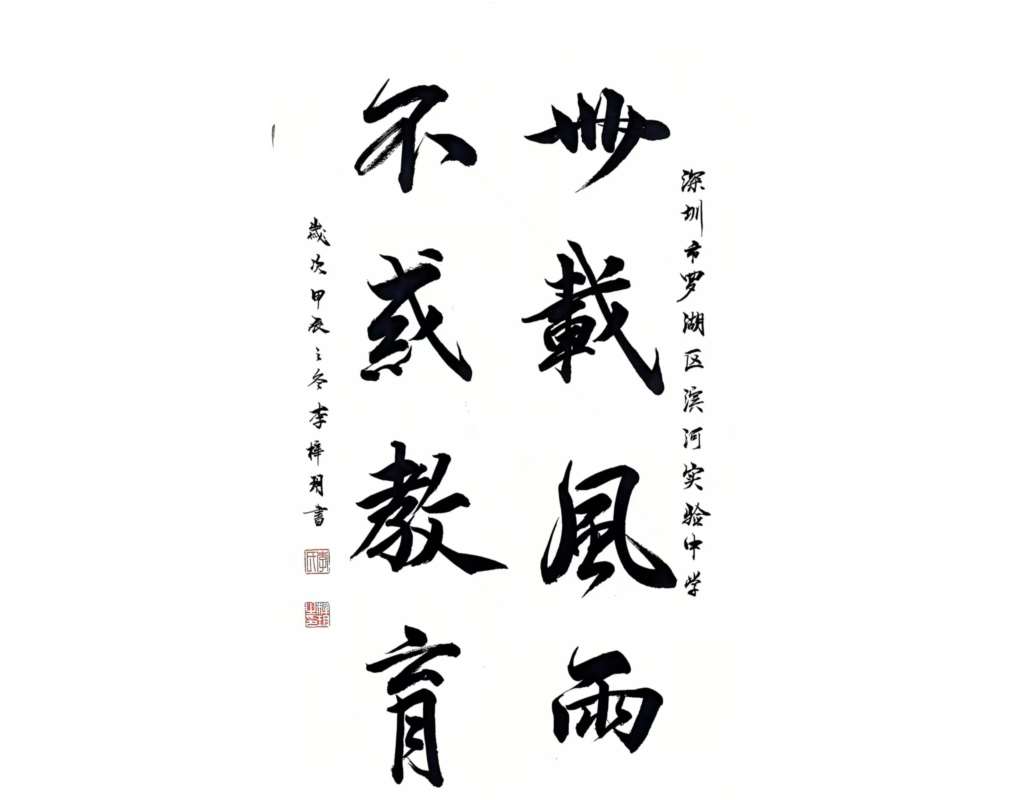 深圳市罗湖区滨河实验中学
卌載風雨
不惑教育
歲次甲辰之冬李梓玥書
李氏